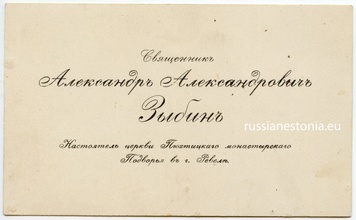 Священникъ
Александръ Александровичъ
Зыбинъ
russianestonia.eu
Настоятель церкви Пюхтицкаго монастырскаго
Подворья въ г. Ревелѣ.